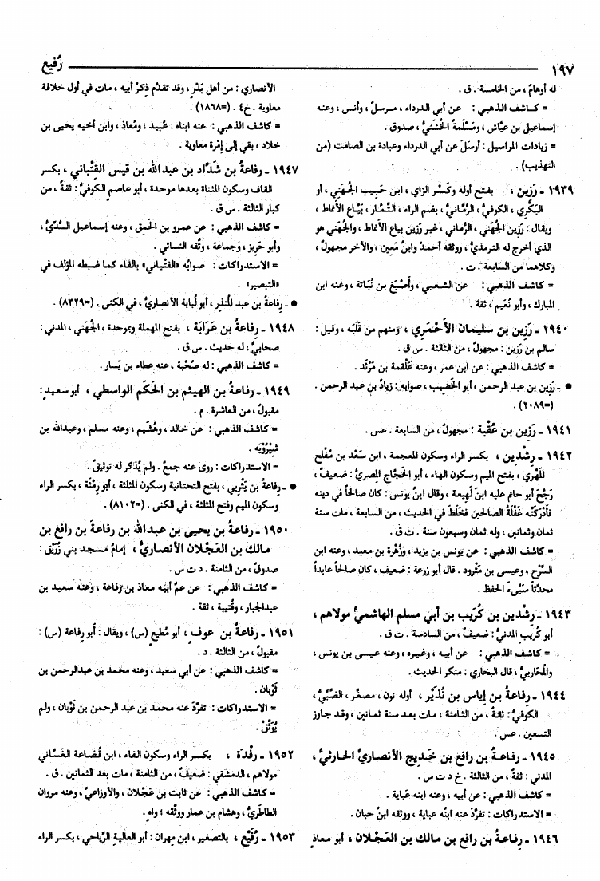 ١٩٧
رُفَيع
له أوهام ، من الخامسة . ق .
= كـاشف الذهبي : عن أبي الدرداء ، مرسلٌ ، وأنس ، وعنه
إسماعيل بن عيّاش ، ومَسْلَمة الخُشَني ، صدوق .
= زيادات المراسيل : أرسل عن أبي الدرداء وعبادة بن الصامت (من
التهذيب) .
١٩٣٩ - رَزِين ، بفتح أوله وكسر الزاي ، ابن حَبيب الجُهني ، أو
البَكْري ، الكوفيُّ ، الرُّمّانيُّ ، بضم الراء ، التمّار ، بيّاع الأنماط ،
ويقال : رَزين الجُهني ، الرُّماني ، غير رَزين بياع الأنماط ، والجُهني هو
الذي أخرج له الترمذيُّ ، ووثقه أحمدُ وابنُ مَعين ، والآخر مجهول ،
وكلاهما من السابعة . ت .
= كاشف الذهبي : عن الشعبي ، وأصْبَغ بن نُبَاتة ، وعنه ابن
المبارك ، وأبو نُعَيم ، ثقة .
١٩٤٠ - رَزِين بن سليمان الأحْمَري ، ومنهم من قَلَبه ، وقيل :
سالم بن رَزين : مجهولٌ ، من الثالثة . س ق .
= كاشف الذهبي : عن ابن عمر ، وعنه عَلْقمة بن مَرْثَد .
● ـ رَزين بن عبد الرحمن ، أبو الخَصيب ، صوابه : زيادُ بن عبد الرحمن .
(=٢٠٨٩) .
١٩٤١ - رَزِين بن عُقْبة : مجهولٌ ، من السابعة . عس .
١٩٤٢ - رِشْدين ، بكسر الراء وسكون المعجمة ، ابن سَعْد بن مُفْلح
المَهْري ، بفتح الميم وسكون الهاء ، أبو الحجّاج المِصريُّ : ضعيفٌ ،
رَجّح أبو حاتم عليه ابنَ لَهيعة ، وقال ابنُ يونس : كان صالحاً في دينه
فأدركَتْه غَفْلةُ الصالحين فخلّط في الحديث ، من السابعة ، مات سنة
ثمان وثمانين ، وله ثمان وسبعون سنة . ت ق .
= كاشف الذهبي : عن يونس بن يزيد ، وزُهْرة بن معبد ، وعنه ابن
السَّرْح ، وعيسى بن مَثْرود . قال أبو زرعة : ضعيف ، كان صالحاً عابداً
محدثاً سَيِّىء الحفظ .
١٩٤٣ - رِشْدين بن كُرَيب بن أبي مسلم الهاشميُّ مولاهم ،
أبو كُرَيب المدنيُّ : ضعيفٌ ، من السادسة . ت ق .
= كاشف الذهبي : عن أبيه ، وغيره ، وعنه عيسى بن يونس ،
والمُحاربيُّ ، قال البخاري : منكر الحديث .
١٩٤٤ - رِفاعة بن إياس بن نُذَير ، أوله نون ، مصغر ، الضَّبِّيُّ ،
الكوفيُّ : ثقة ، من الثامنة ، مات بعد سنة ثمانين ، وقد جاوز
التسعين . عس .
١٩٤٥ - رِفاعة بن رافع بن خَديج الأنصاريُّ الحارثيُّ ،
المدني : ثقةٌ ، من الثالثة . خ د ت س .
= كاشف الذهبي : عن أبيه ، وعنه ابنه عباية .
= الاستدراكات : تفرّدَ عنه ابنُه عباية ، ووثقه ابنُ حبان .
١٩٤٦ - رِفاعة بن رافع بن مالك بن العَجْلان ، أبو معاذ
الأنصاري : من أهل بَدْرٍ ، وقد تقدّم ذِكْرُ أبيه ، مات في أول خلافة
معاوية . خ٤ . (=١٨٦٨) .
= كاشف الذهبي : عنه ابناه : عُبيد ، ومُعاذ ، وابن أخيه يحيى بن
خلاد ، بقي إلى إمْرة معاوية .
١٩٤٧ - رِفاعة بن شدّاد بن عبدالله بن قيس القِتْباني ، بكسر
القاف وسكون المثناة بعدها موحدة ، أبو عاصم الكوفيُّ : ثقةٌ ، من
كبار الثالثة . س ق .
= كاشف الذهبي : عن عمرو بن الحَمِق ، وعنه إسماعيل السُّدِّيّ ،
وأبو حَريز ، وجماعة ، وثّقه النسائي .
= الاستدراكات : صوابُه «الفِتْيانيُّ» بالفاء كما ضبطه المؤلف في
«التبصير» .
● ـ رِفاعة بن عبد المُنذر ، أبو لُبابة الأنصاريُّ ، في الكنى . (=٨٣٢٩) .
١٩٤٨ - رِفاعة بن عَرَابة ، بفتح المهملة وبموحدة ، الجُهَني ، المدني :
صحابيٌّ ، له حديث . س ق .
= كاشف الذهبي : له صُحْبة ، عنه عطاء بن يَسار .
١٩٤٩ - رِفاعةُ بن الهيثم بن الحَكَم الواسطي ، أبو سعيد :
مقبولٌ ، من العاشرة . م .
= كاشف الذهبي : عن خالد ، وهُشَيم ، وعنه مسلم ، وعبدالله بن
شِيْرُوَيه .
= الاستدراكات : روى عنه جمعٌ . ولم يُذكر له توثيقٌ .
● ـ رِفاعة بن يَثْربي ، بفتح التحتانية وسكون المثلثة ، أبو رِمْثة ، بكسر الراء
وسكون الميم وفتح المثلثة ، في الكنى . (=٨١٠٢) .
١٩٥٠ - رِفاعة بن يحيى بن عبدالله بن رِفاعة بن رافع بن
مالك بن العَجْلان الأنصاريُّ ، إمامُ مسجد بني زُرَيْق :
صدوقٌ ، من الثامنة . د ت س .
= كاشف الذهبي : عن عمِّ أبيه معاذ بن رِفاعة ، وعنه سعيد بن
عبدالجبار ، وقُتيبة ، ثقة .
١٩٥١ - رِفاعة بن عوف ، أبو مُطيع (س) ، ويقال : أبو رِفاعة (س) :
مقبول ، من الثالثة . د .
= كاشف الذهبي : عن أبي سعيد ، وعنه محمد بن عبدالرحمن بن
ثَوْبان .
= الاستدراكات : تفرّد عنه محمد بن عبد الرحمن بن ثَوْبان ، ولم
يُوَثَّقْ .
١٩٥٢ - رِفْدة ، بكسر الراء وسكون الفاء ، ابن قُضاعة الغَسّاني
مولاهم ، الدمشقي : ضعيفٌ ، من الثامنة ، مات بعد الثمانين . ق .
= كاشف الذهبي : عن ثابت بن عَجْلان ، والأوزاعي ، وعنه مروان
الطاطَريُّ ، وهشام بن عمار ووثّقه ، واهٍ .
١٩٥٣ - رُفَيْع ، بالتصغير ، ابن مِهران : أبو العالية الرِّياحي ، بكسر الراء